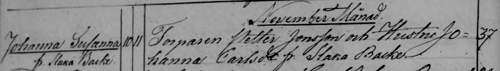 November Månad
Johanna Susanna 10 11 Torparen Petter Jonsson och Hustru Jo= 37
fr. Slaka Backe hanna Carlsdr fr Slaka Backe